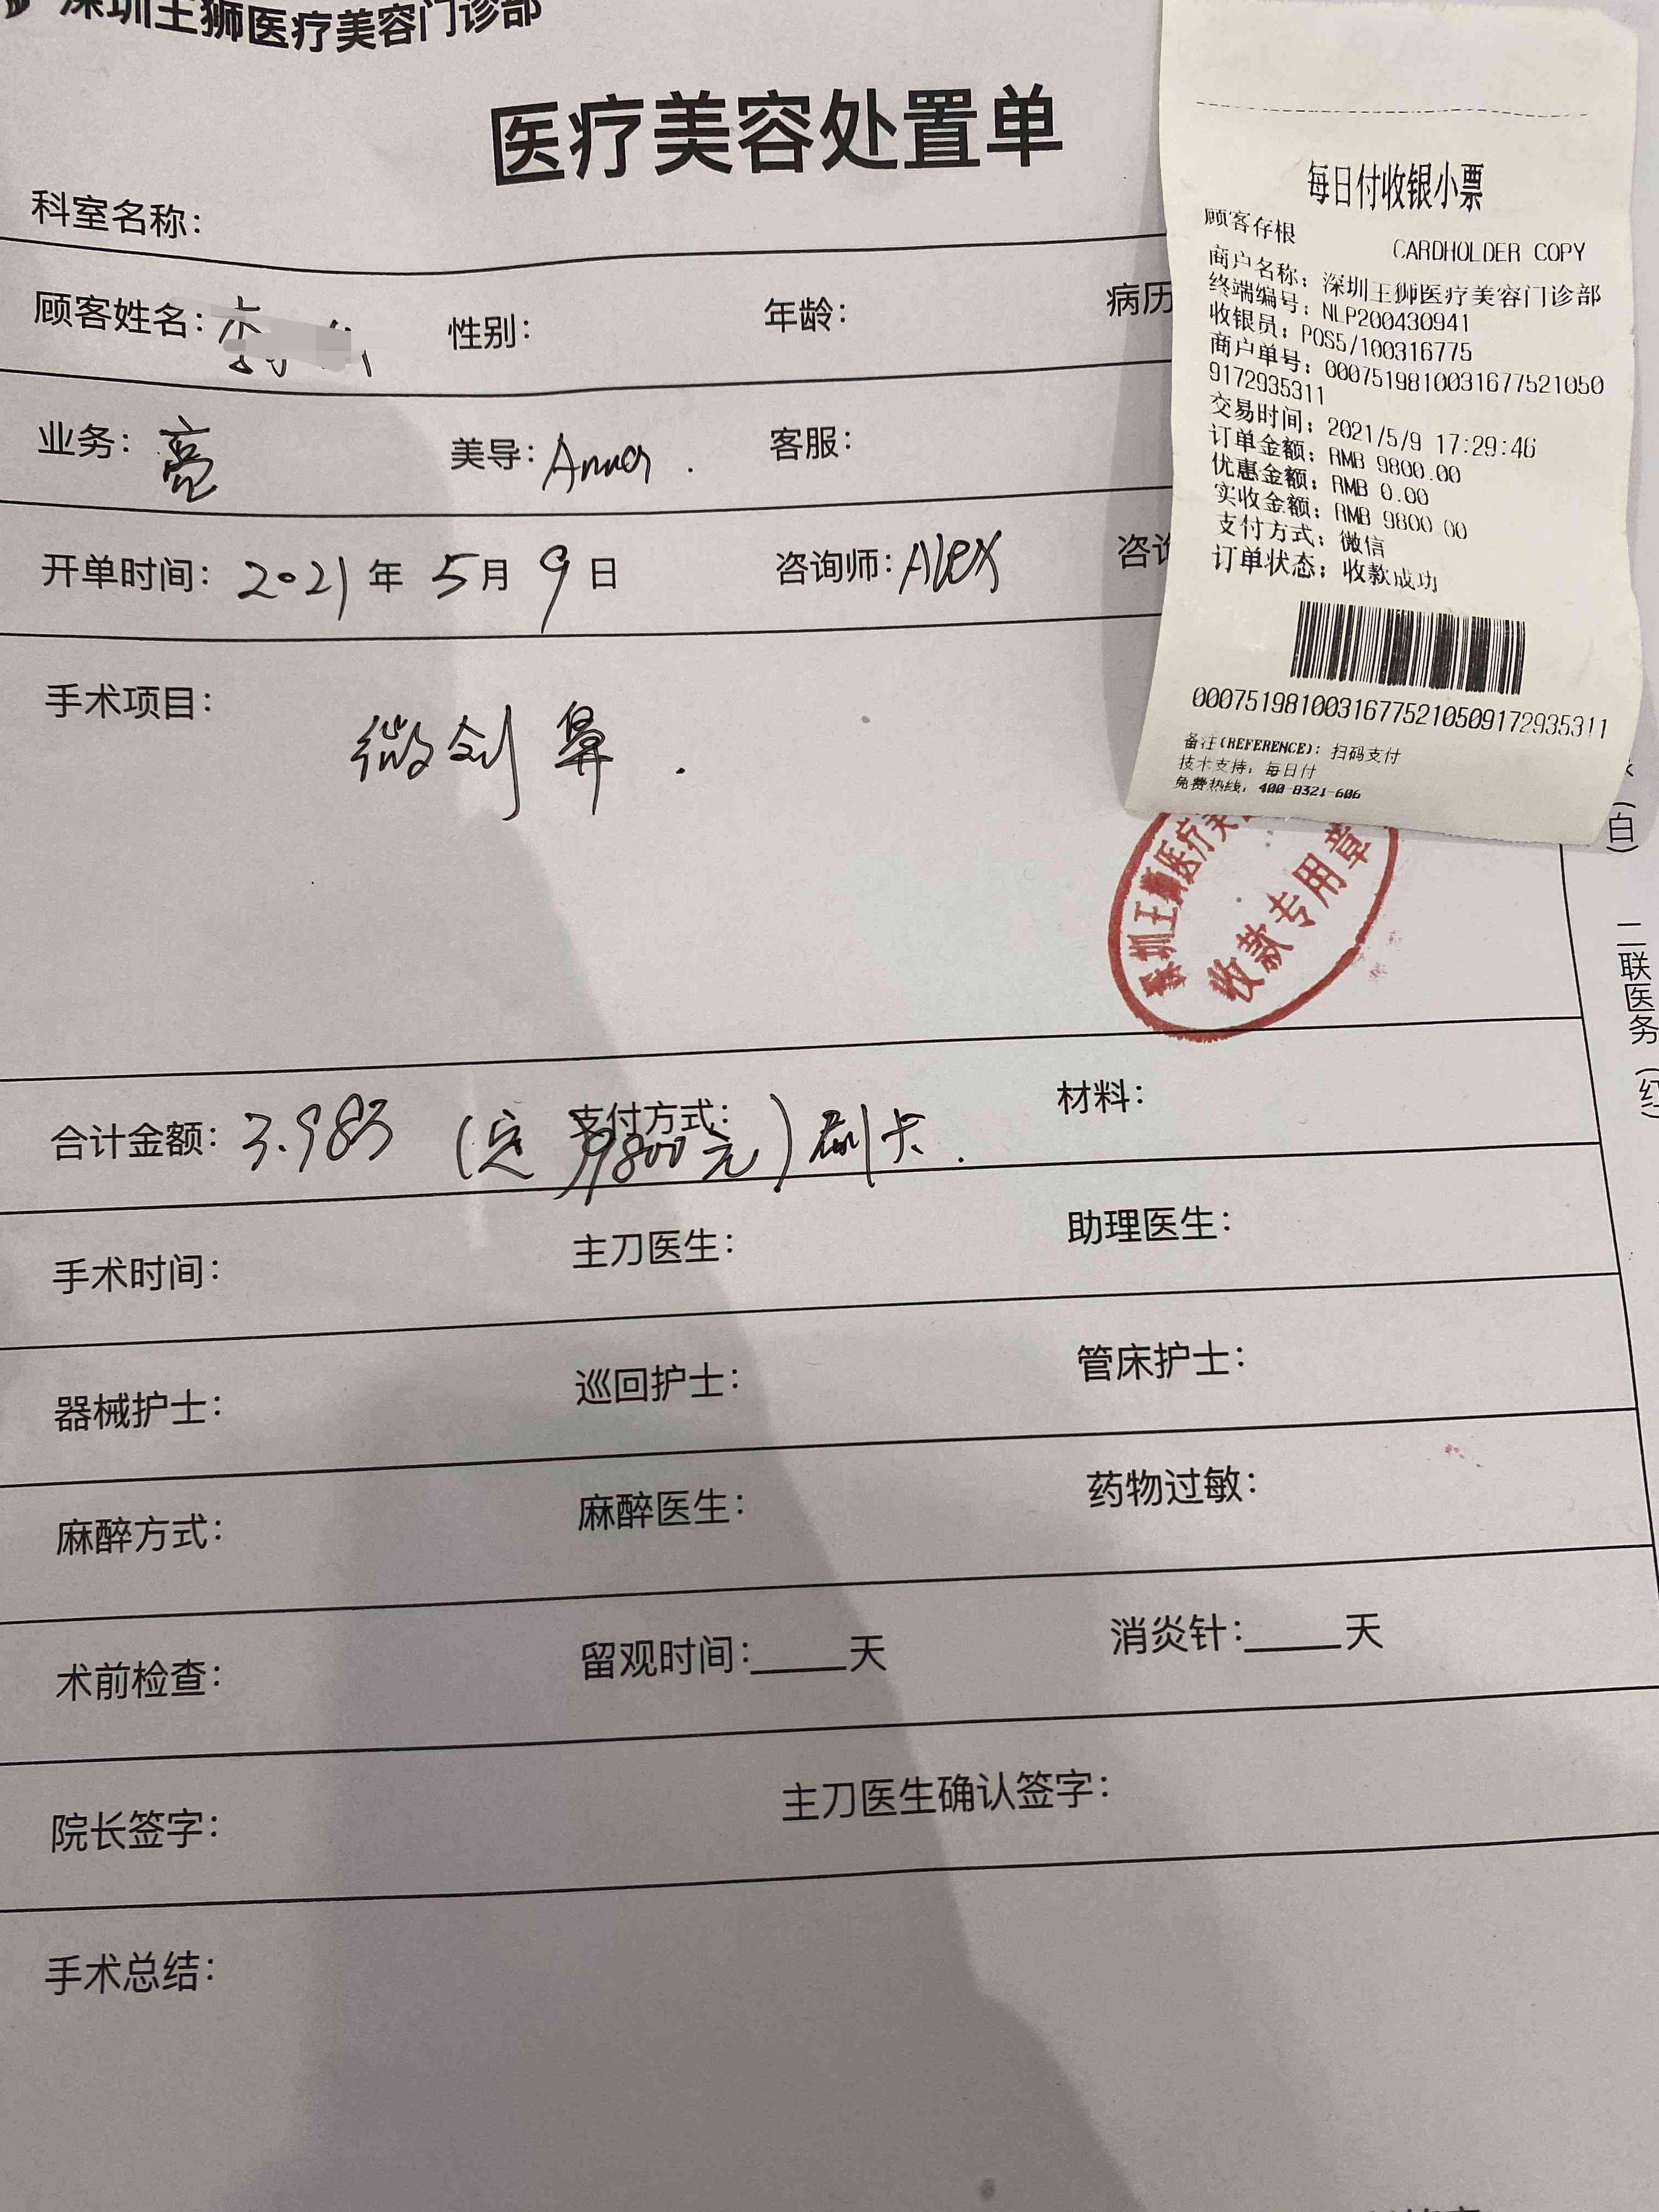 深圳王狮医疗美容门诊部
医疗美容处置单
科室名称：
顾客姓名： 性别： 年龄： 病历
业务：亮 美导：Anna. 客服：
开单时间：2021年 5月 9日 咨询师：Alex 咨询
手术项目：
微创鼻.
合计金额：3.98万 (定 9800元) 支付方式：刷卡. 材料：
手术时间： 主刀医生： 助理医生：
器械护士： 巡回护士： 管床护士：
麻醉方式： 麻醉医生： 药物过敏：
术前检查： 留观时间：____天 消炎针：____天
院长签字： 主刀医生确认签字：
手术总结：
每日付收银小票
顾客存根
CARDHOLDER COPY
商户名称：深圳王狮医疗美容门诊部
终端编号：NLP200430941
收银员：POS5/100316775
商户单号：0007519810031677521050
9172935311
交易时间：2021/5/9 17:29:46
订单金额：RMB 9800.00
优惠金额：RMB 0.00
实收金额：RMB 9800.00
支付方式：微信
订单状态：收款成功
00075198100316775210509172935311
备注(REFERENCE)：扫码支付
技术支持：每日付
免费热线：400-8321-606
深圳王狮医疗美
收款专用章
（白）
二联医务（红）